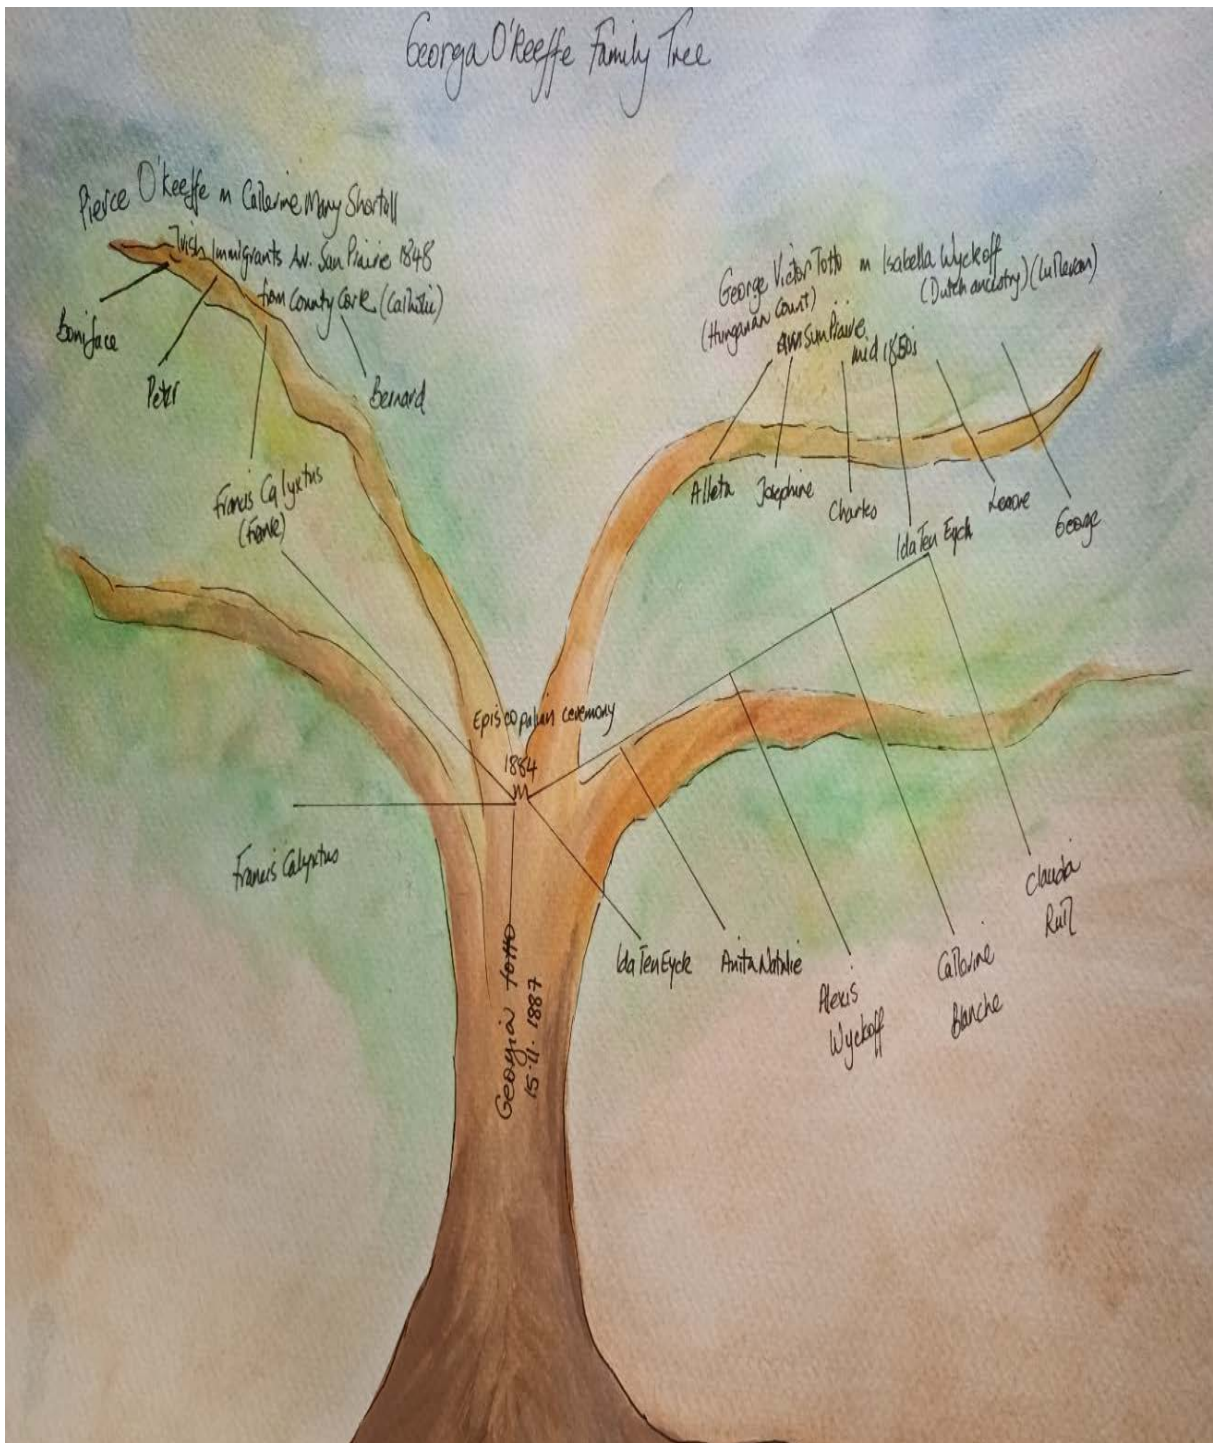 Georga O'Keeffe Family Tree
Pierce O'Keeffe m Catherine Mary Shortall
Irish Immigrants Arr. Sun Prairie 1848
from County Cork (Catholic)
Boniface
Peter
Bernard
Francis Calyxtus
(Frank)
George Victor Totto m Isabella Wyckoff
(Hungarian Count)
(Dutch ancestry) (Lutheran)
Sun Prairie
mid 1850s
Alleta
Josephine
Charles
Ida Ten Eyck
Leonore
George
Episcopalian ceremony
1884
M
Francis Calyxtus
Georgia Totto
15.11.1887
Ida Ten Eyck
Anita Natalie
Alexis
Wyckoff
Catherine
Blanche
Claudia
Ruth